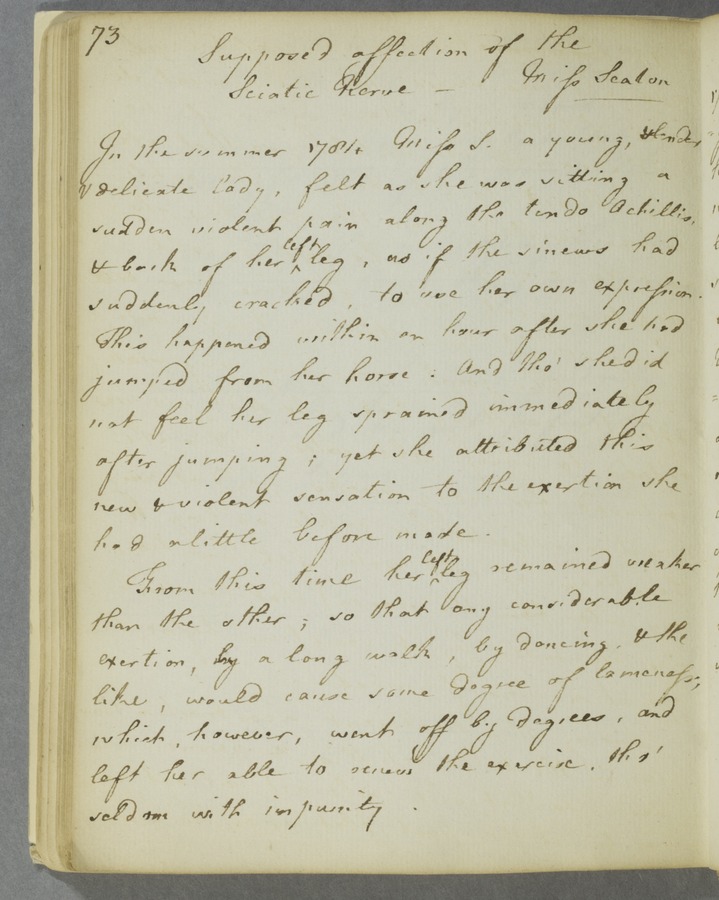 73
Supposed affection of the
Sciatic Nerve — Miss Seaton
In the summer 1784 Miss S. a young, tender
& delicate lady, felt as she was sitting a
sudden violent pain along the tendo Achillis,
& back of her left leg, as if the sinews had
suddenly cracked, to use her own expression.
This happened within an hour after she had
jumped from her horse : And tho' she did
not feel her leg sprained immediately
after jumping ; yet she attributed this
new & violent sensation to the exertion she
had a little before made.
From this time her left leg remained weaker
than the other ; so that any considerable
exertion, by a long walk, by dancing, & the
like, would cause some degree of lameness;
which, however, went off by degrees, and
left her able to renew the exercise, tho'
seldom with impunity.